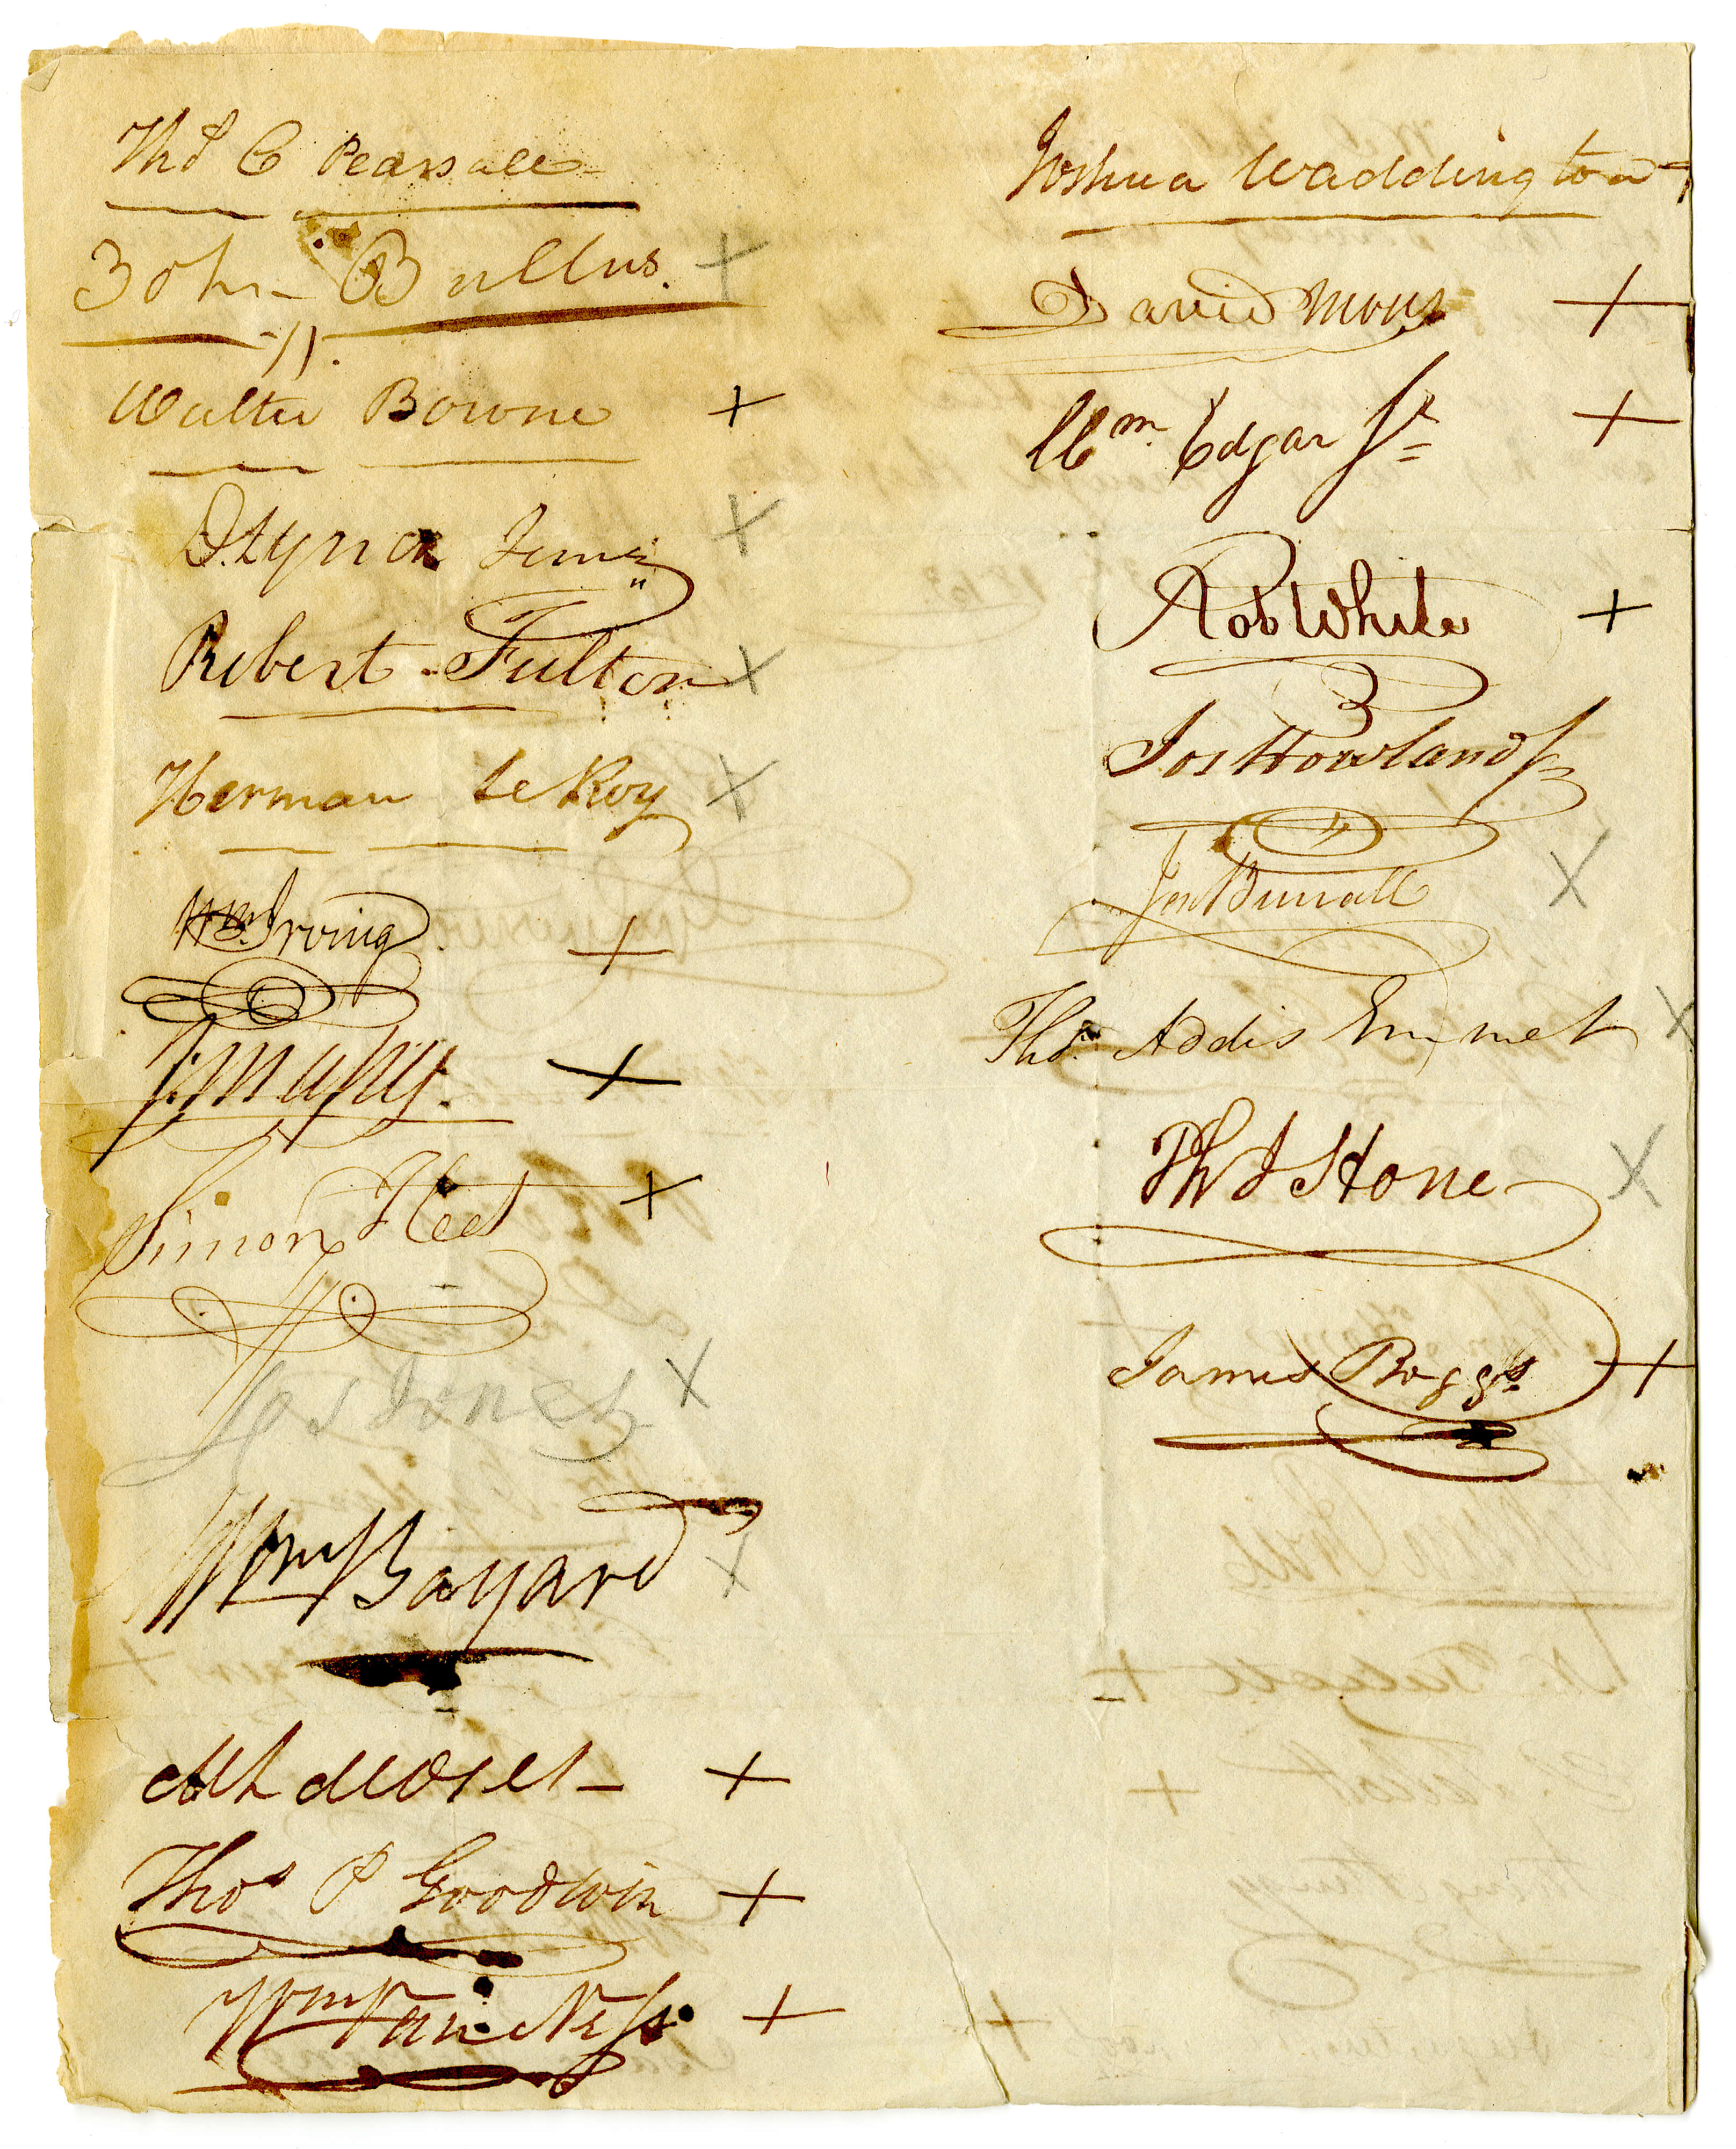 Thos C Pearsall
John Bullus.
Walter Bowne
D. Lynch Junr
Robert Fulton
Herman LeRoy
Wm Irving
Simon
Jones
Wm Bayard
Thos P Goodwin
Wm Van Ness
Joshua Waddington
David
Wm Edgar Jr
Robt White
Jos Howland
Jon Burrall
Thos Addis Emmet
James Boggs